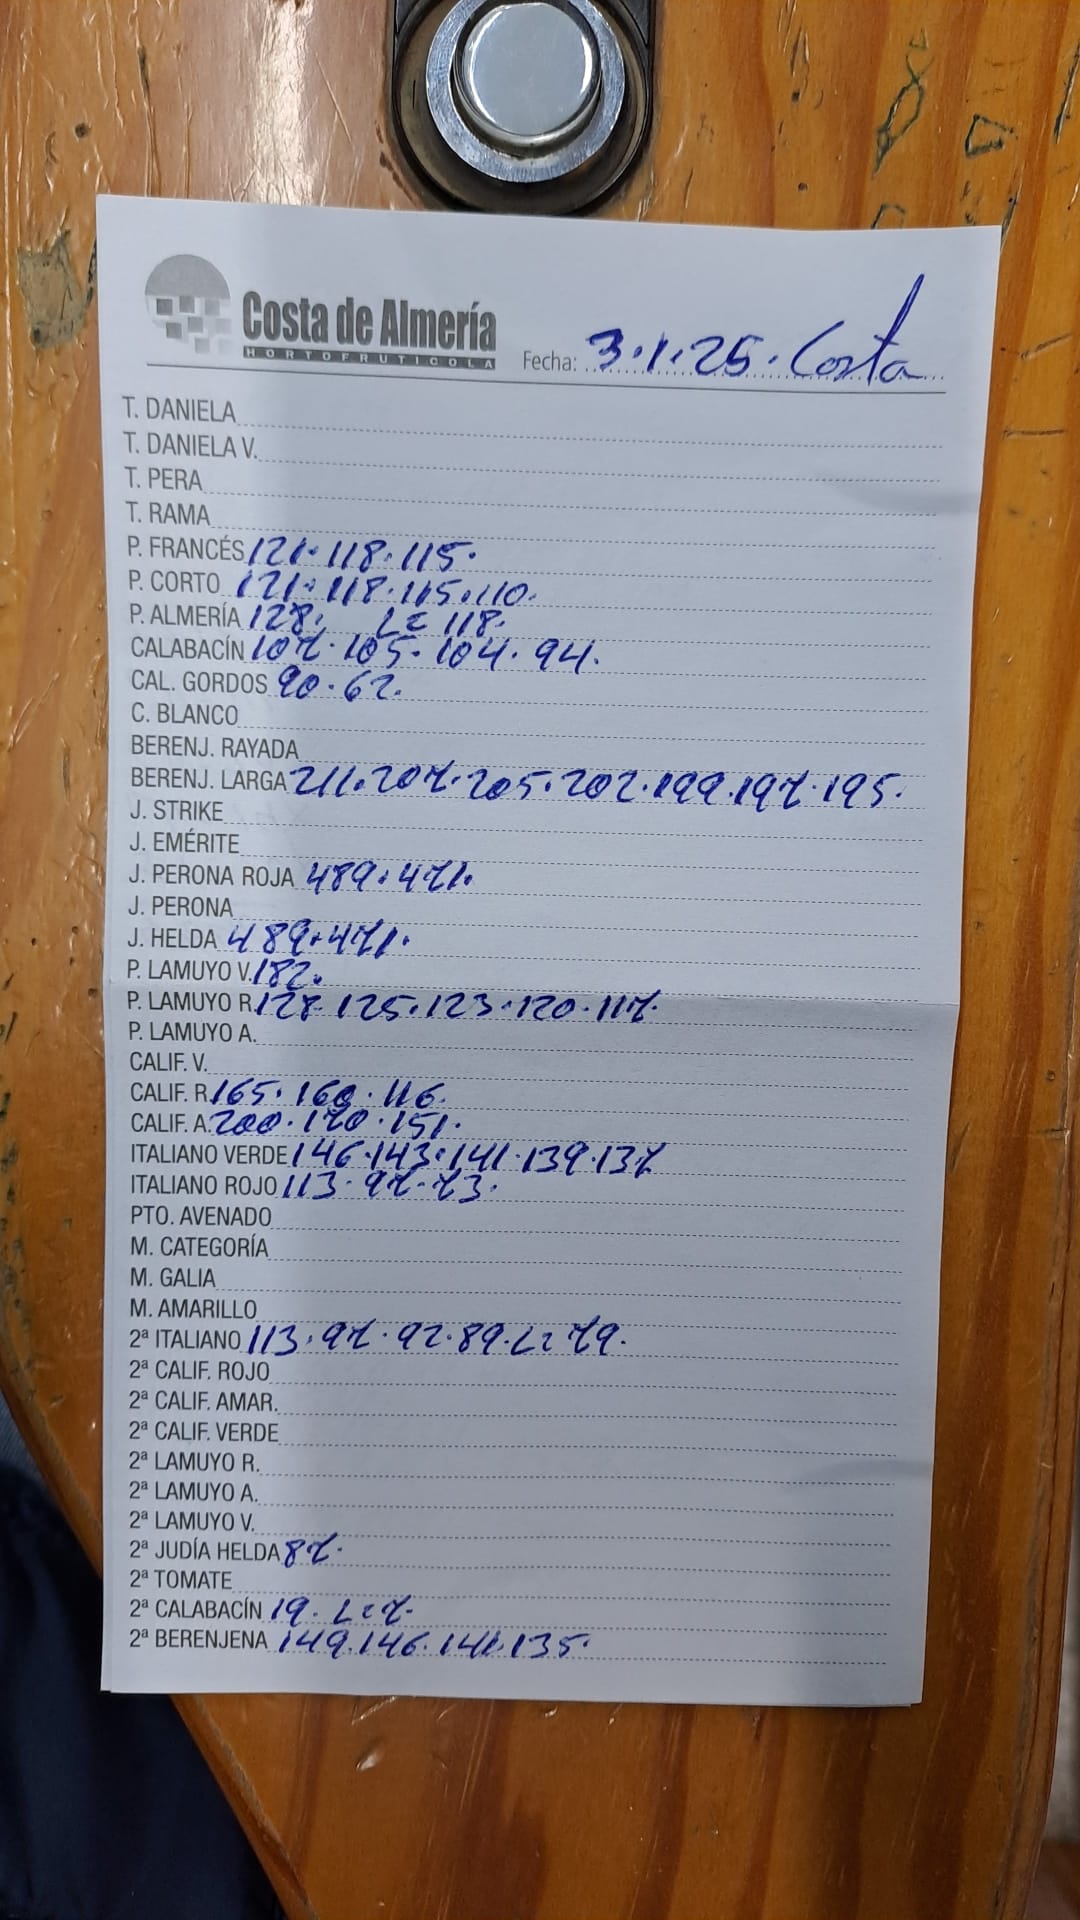 Costa de Almería
HORTOFRUTICOLA
Fecha: 3.1.25. Costa
T. DANIELA
T. DANIELA V.
T. PERA
T. RAMA
P. FRANCÉS 121. 118. 115.
P. CORTO 121. 118. 115. 110.
P. ALMERÍA 128. L= 118.
CALABACÍN 107. 105. 104. 94.
CAL. GORDOS 90. 62.
C. BLANCO
BERENJ. RAYADA
BERENJ. LARGA 211. 207. 205. 202. 199. 197. 195.
J. STRIKE
J. EMÉRITE
J. PERONA ROJA 489. 471.
J. PERONA
J. HELDA 489. 471.
P. LAMUYO V. 182.
P. LAMUYO R. 128. 125. 123. 120. 117.
P. LAMUYO A.
CALIF. V.
CALIF. R. 165. 160. 116.
CALIF. A. 200. 170. 151.
ITALIANO VERDE 146. 143. 141. 139. 137
ITALIANO ROJO 113. 97. 73.
PTO. AVENADO
M. CATEGORÍA
M. GALIA
M. AMARILLO
2ª ITALIANO 113. 97. 92. 89. L= 79.
2ª CALIF. ROJO
2ª CALIF. AMAR.
2ª CALIF. VERDE
2ª LAMUYO R.
2ª LAMUYO A.
2ª LAMUYO V.
2ª JUDÍA HELDA 87.
2ª TOMATE
2ª CALABACÍN 19. L= 7.
2ª BERENJENA 149. 146. 141. 135.